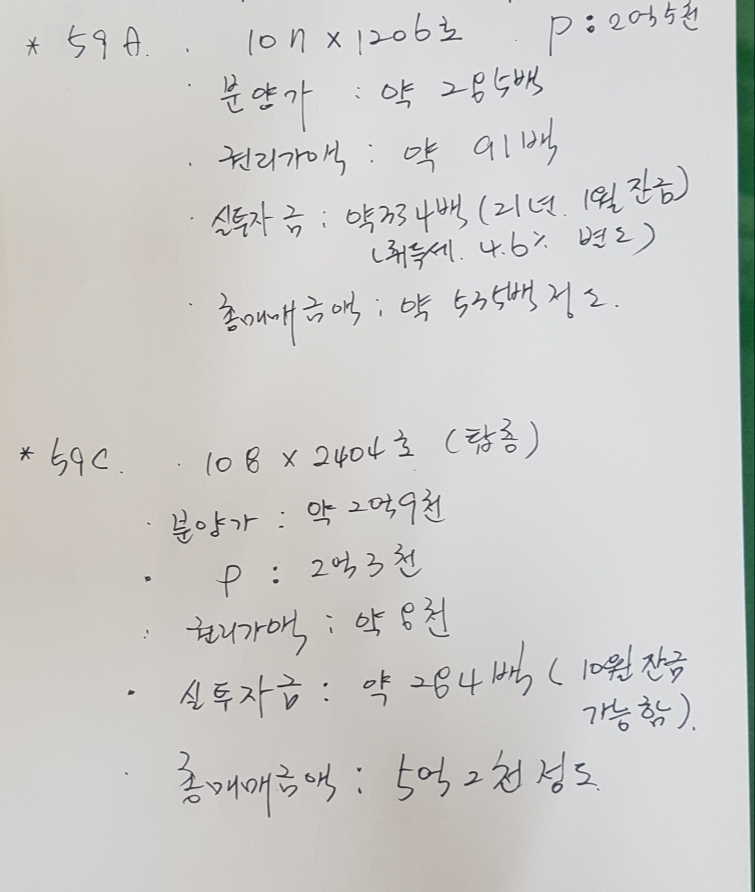 * 59A. · 107 x 1206호 · P : 2억5천
· 분양가 : 약 285백
· 권리가액 : 약 91백
· 실투자금 : 약 334백 (21년. 1월 잔금)
(취득세. 4.6% 별도)
· 총매매금액 : 약 535백 정도.
* 59C. · 108 x 2404호 (탑층)
· 분양가 : 약 2억9천
· P : 2억3천
· 권리가액 : 약 8천
· 실투자금 : 약 284백 (10월 잔금
가능함).
· 총매매금액 : 5억2천 정도.